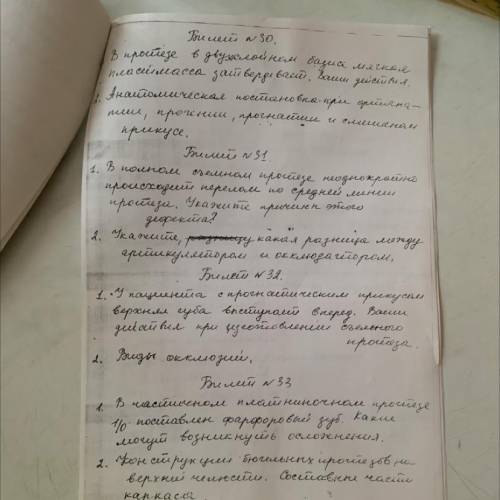 Билет №30.
В протезе в двухслойном базисе мягкая
пластмасса затвердевает. Ваши действия.
2. Анатомическая постановка при ортогна-
тии, прогении, прогнатии и смешаном
прикусе.
Билет №31.
1. В полном съемном протезе неоднократно
происходит перелом по средней линии
протеза. Укажите причины этого
дефекта?
2. Укажите, разницу какая разница между
артикулятором и окклюдатором.
Билет №32.
1. У пациента с прогнатическим прикусом
верхняя губа выступает вперед. Ваши
действия при изготовлении съемного
протеза.
2. Виды окклюзий.
Билет №33
1. В частичном пластиночном протезе
1/0 поставлен фарфоровый зуб. Какие
могут возникнуть осложнения.
2. Конструкции бюгельных протезов на
верхней челюсти. Составные части
каркасы